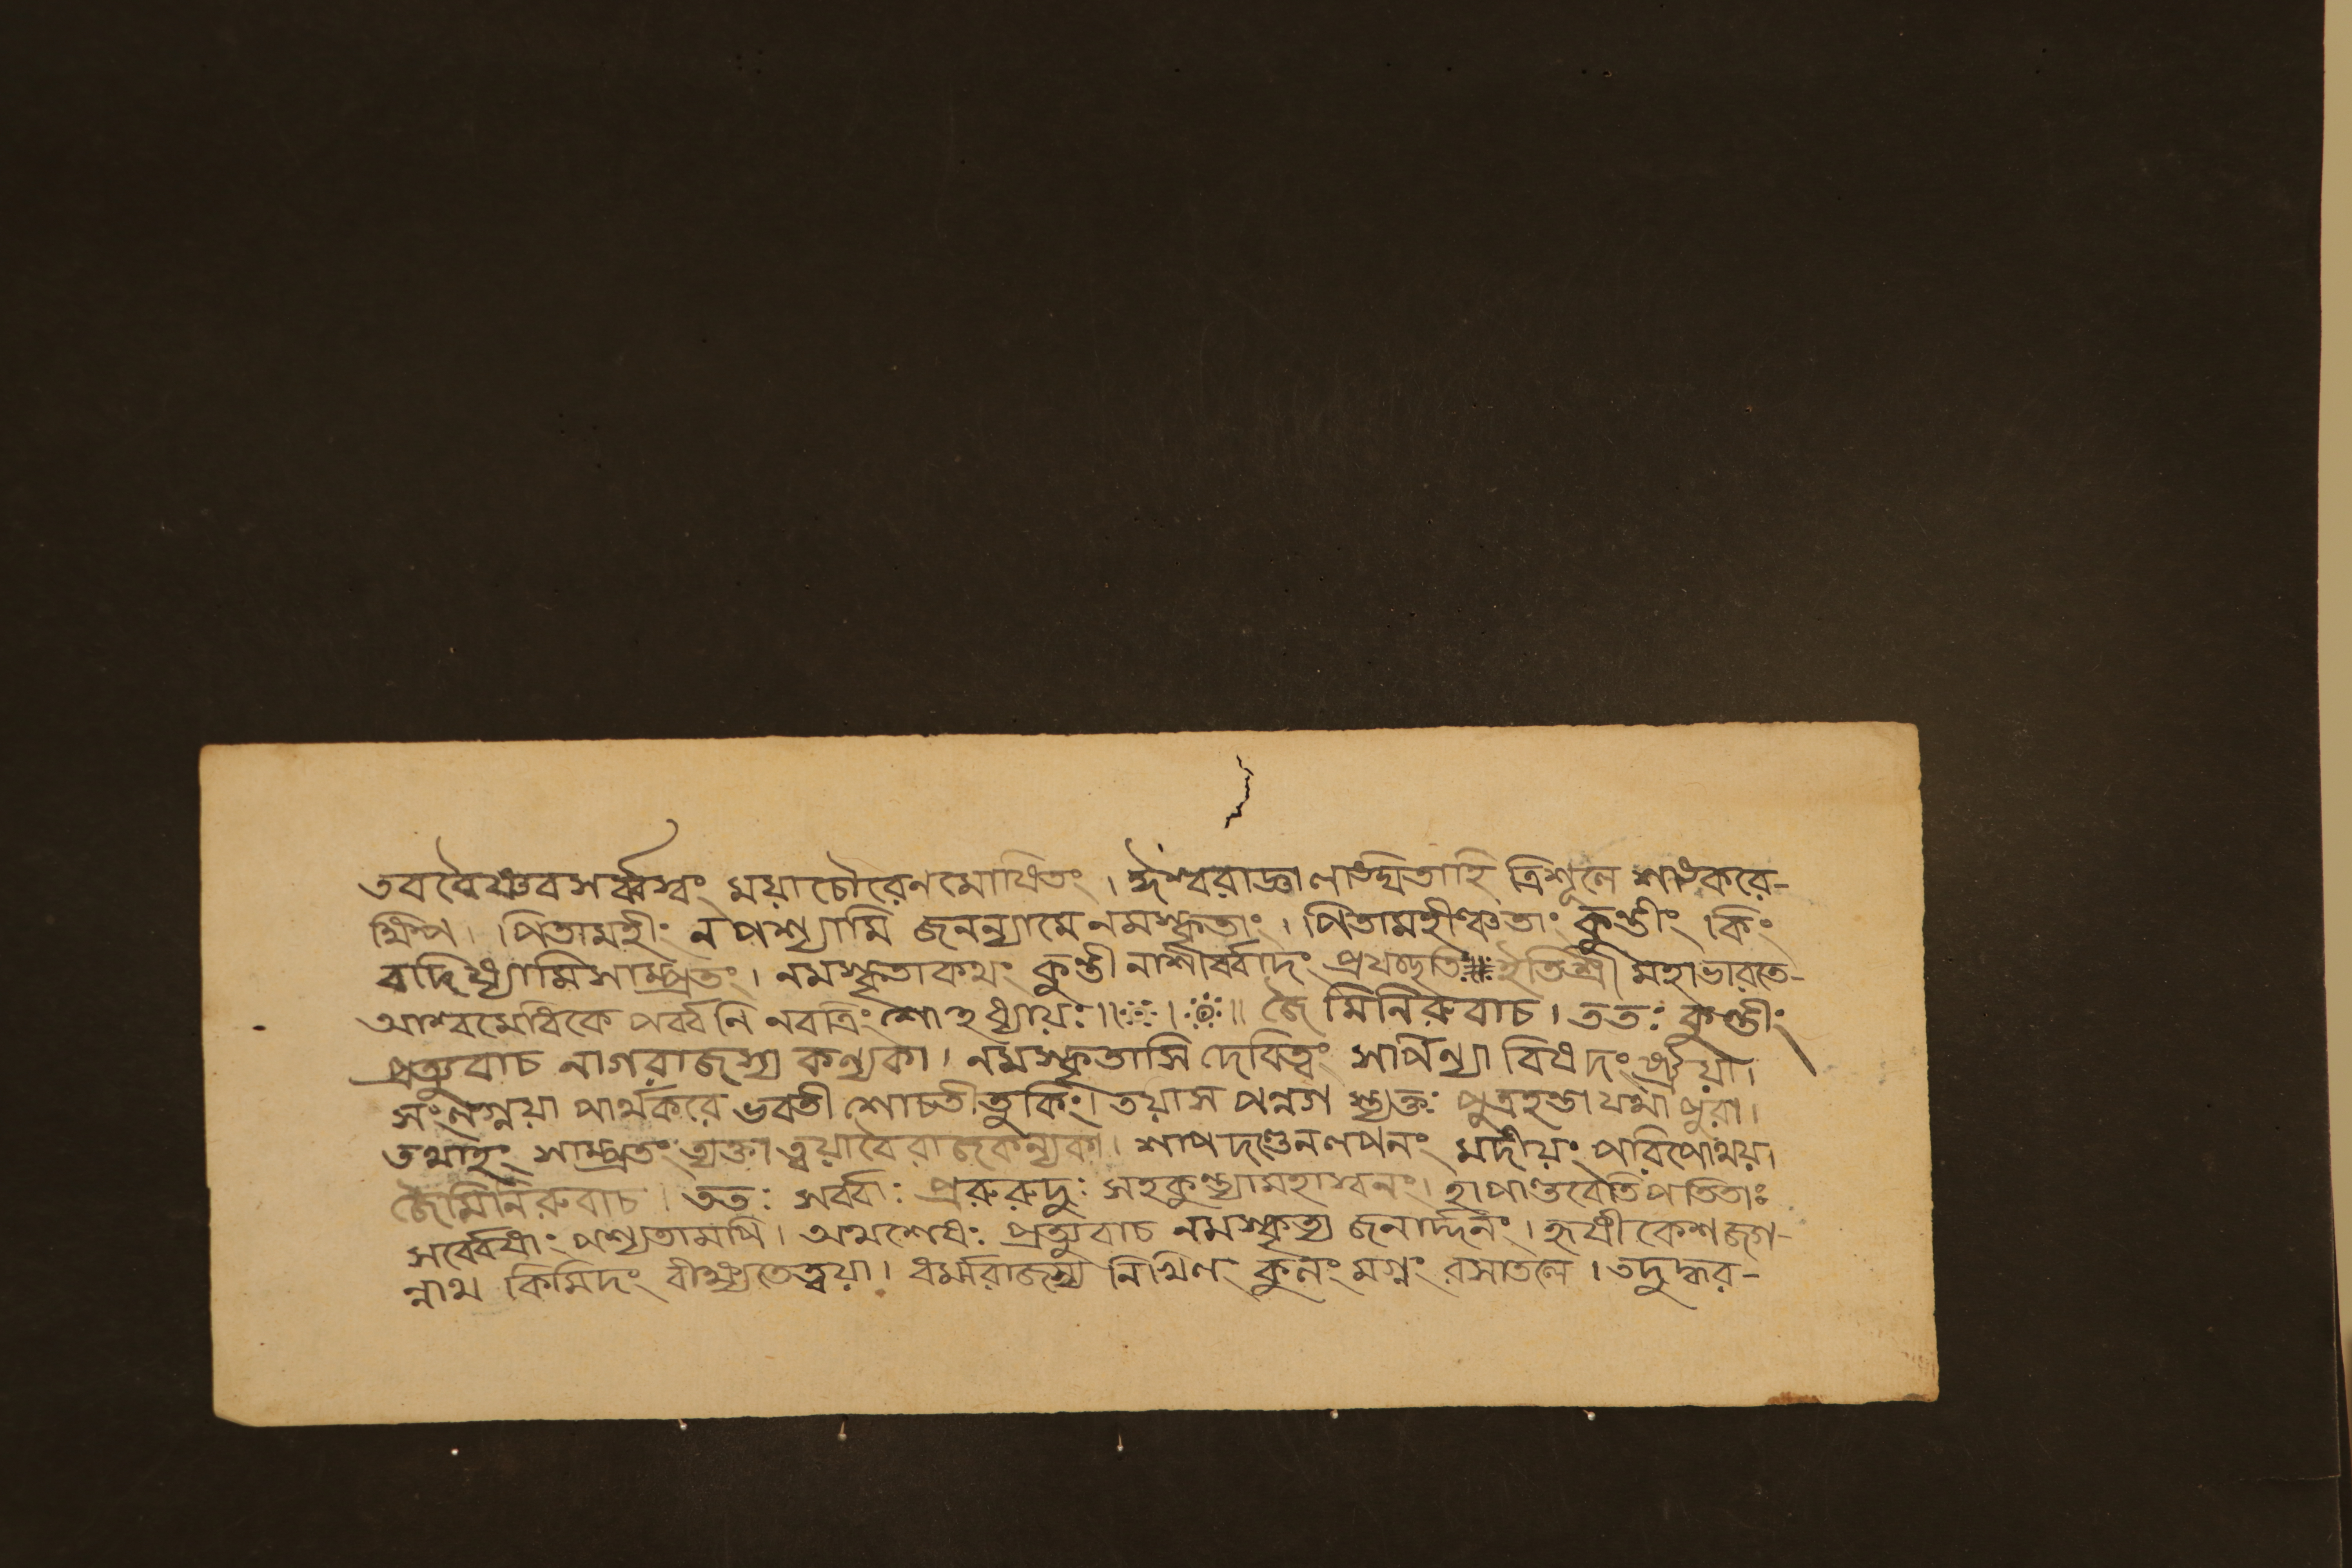 তব বৈষ্ণবসর্ব্বস্বং ময়াচৌরেণমোষিতং । ঈশ্বরাজ্ঞা লঙ্ঘিতাহি ত্রিশূলে শঙ্করে-
ক্ষিপ । পিতামহীং ন পশ্যামি জনন্যামে নমস্কৃতাং । পিতামহীঞ্চতাং কুন্তীং কিং
বাদিষ্যামিসাম্প্রতং । নমস্কৃতাকথং কুন্তী নাশীর্ব্বাদং প্রযচ্ছতি॥ ইতিশ্রী মহাভারতে-
আশ্বমেধিকে পর্ব্বনি নবত্রিংশোঽধ্যায়ঃ ॥ । ॥ জৈমিনিরুবাচ । ততঃ কুন্তীং
প্রত্যুবাচ নাগরাজস্য কন্যকা । নমস্কৃতাসি দেবিত্বং সর্পিন্যা বিষদংষ্ট্রয়া।
সংলগ্নয়া পার্থকরে ভবতী শোচতীতুকিং। তয়াস পন্নগ স্ত্যক্তঃ পুত্রহন্তা যথা পুরা।
তথাহং সাম্প্রতং ত্যক্তা ত্বয়াবৈ রাজকন্যকা । শাপদণ্ডেনলপনং মদীয়ং পরিপোথয়।
জৈমিনিরুবাচ । ততঃ সর্ব্বাঃ প্ররুরুদুঃ সহকুন্ত্যামহাস্বনং। হাপাণ্ডবেতিপতিতাঃ
সর্ব্বেষাং পশ্যতামপি । অথশেষঃ প্রত্যুবাচ নমস্কৃত্য জনার্দ্দনং । হৃষীকেশ জগ-
ন্নাথ কিমিদং বীক্ষ্যতেত্বয়া । ধর্ম্মরাজস্য নিখিলং কুলং মগ্নং রসাতলে । তদুদ্ধর-